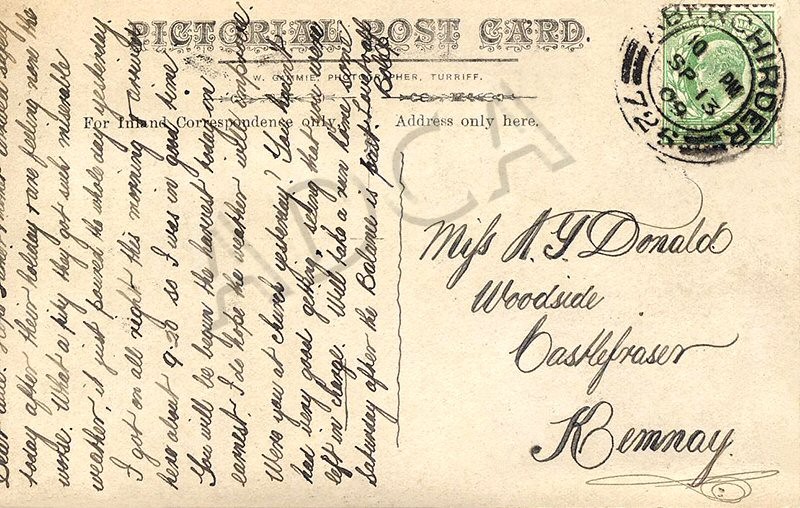 PICTORIAL POST CARD.
W. GAMMIE, PHOTOGRAPHER, TURRIFF.
For Inland Correspondence only.
Address only here.
ABERCHIRDER
10 PM
SP 13
09
723
Miss A. Y. Donald
Woodside
Castlefraser
Kemnay.
today after their holiday & are feeling non the
worse. What a pity they got such miserable
weather, it just poured the whole day yesterday.
I got on all right this morning arriving
here about 9.20 so I was in good time
You will be begun the harvest today in
earnest. I do hope the weather will improve
Were you at church yesterday? You hadn't
had very good getting, seeing that you were
left in charge. Will take a run home some
Saturday after the Balance is past. Love
ALCA